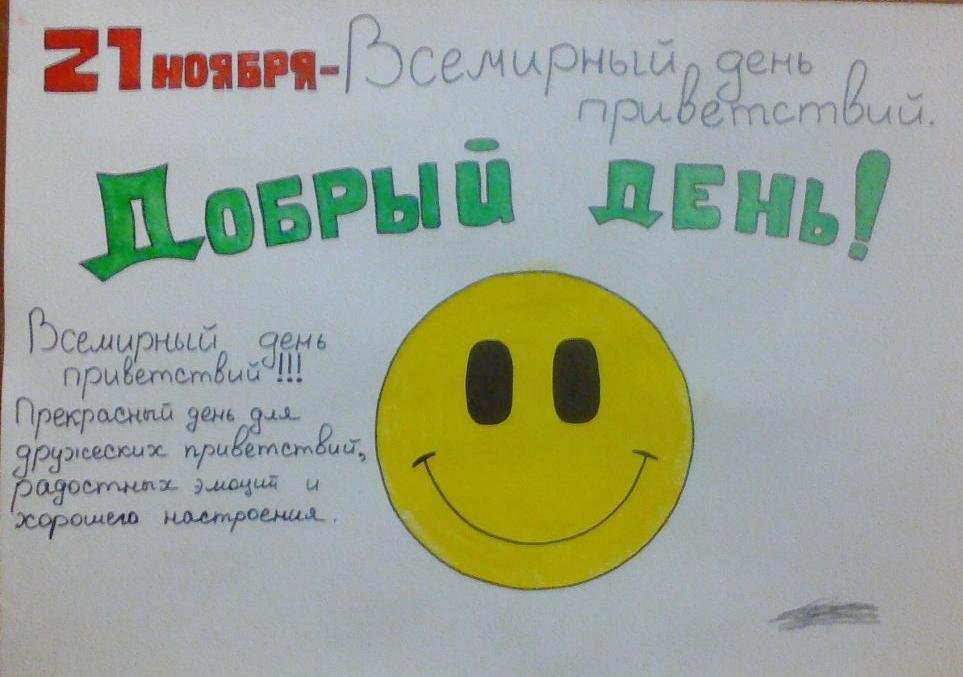 21 НОЯБРЯ-Всемирный день
приветствий.
ДОБРЫЙ ДЕНЬ!
Всемирный день
приветствий!!!
Прекрасный день для
дружеских приветствий,
радостных эмоций и
хорошего настроения.